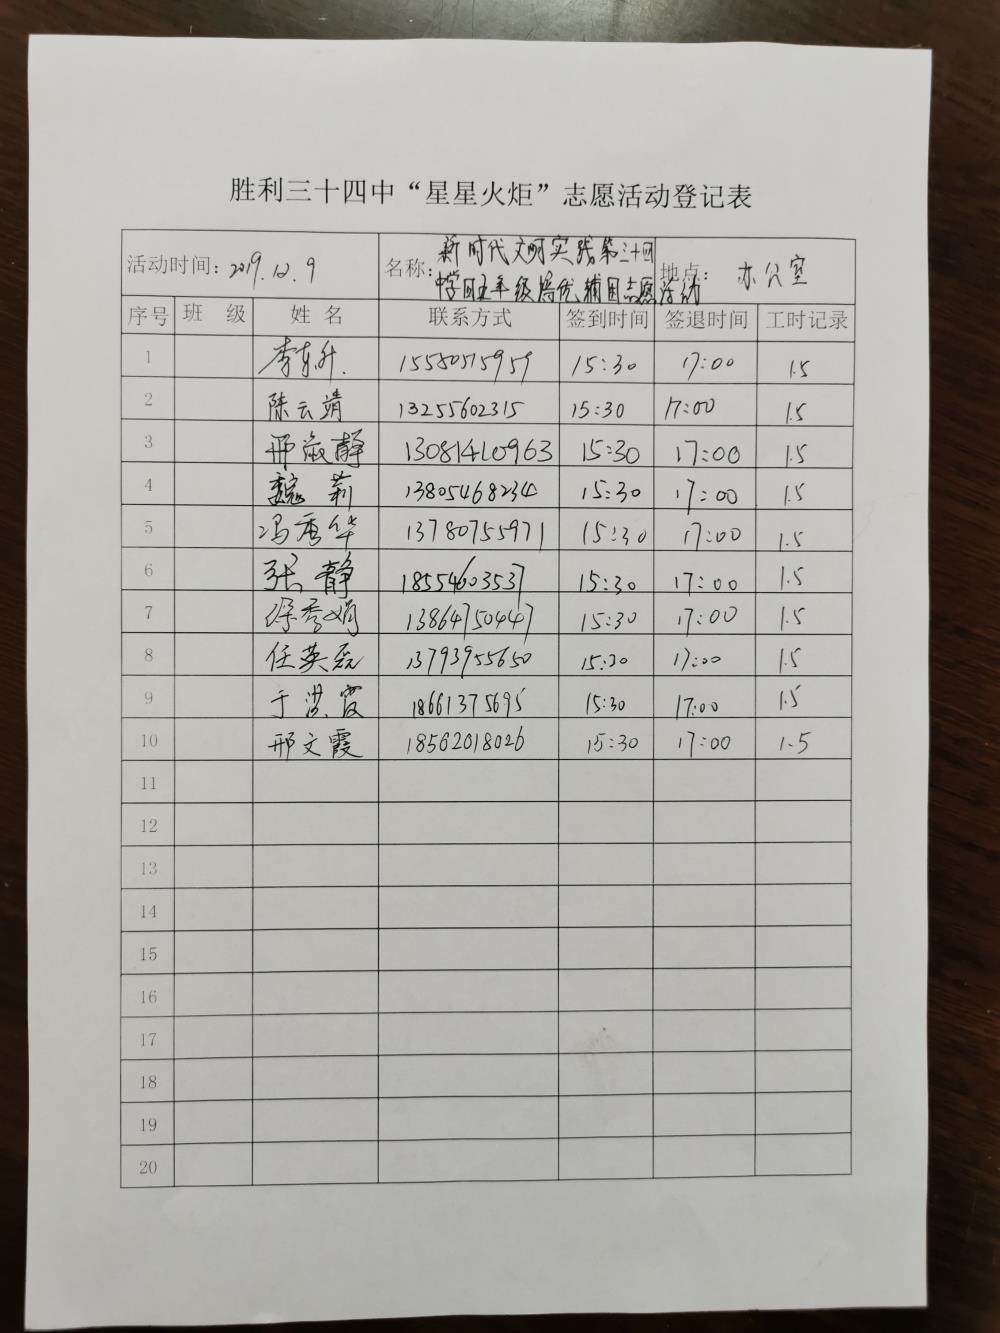 胜利三十四中“星星火炬”志愿活动登记表
活动时间：2019.12.9 名称：新时代文明实践第三十四中学回五年级培优辅困志愿活动 地点：办公室
序号 班 级 姓 名 联系方式 签到时间 签退时间 工时记录
1 李东升 15580515959 15:30 17:00 1.5
2 陈云靖 13255602315 15:30 17:00 1.5
3 邢淑静 13081410963 15:30 17:00 1.5
4 魏莉 13805468234 15:30 17:00 1.5
5 冯秀华 13780755971 15:30 17:00 1.5
6 张静 18554603537 15:30 17:00 1.5
7 徐秀娟 13864750447 15:30 17:00 1.5
8 任英磊 13793955650 15:30 17:00 1.5
9 于洪霞 18661375695 15:30 17:00 1.5
10 邢文霞 18562018026 15:30 17:00 1.5
11
12
13
14
15
16
17
18
19
20